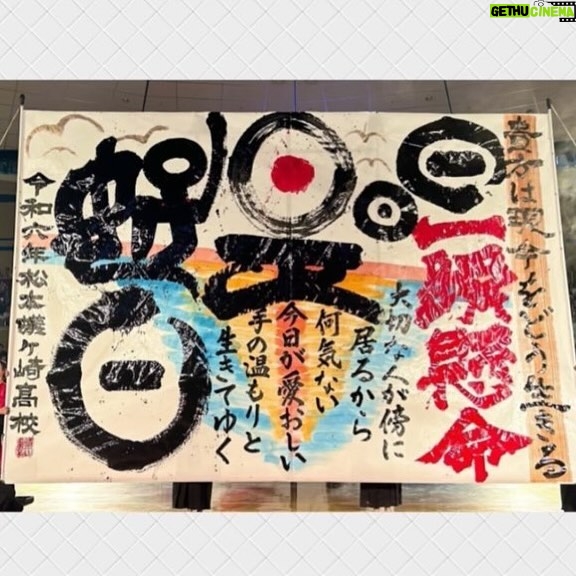 GETHU CINEMA
貴方は現今をどう生きる
一瞬懸命
日日是好日
大切な人が傍に
居るから
何気ない
今日が愛おしい
手の温もりと
生きてゆく
令和六年松本蟻ヶ崎高校